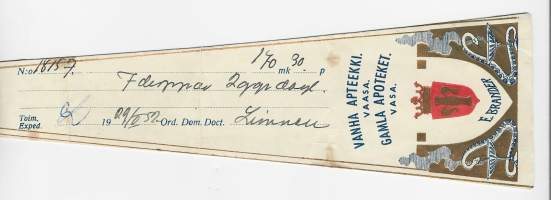 N:o 18157 170 mk 30 p
7 droppar 2 ggr dagl.
Toim.
Exped. 19 29/V 52 Ord. Dom. Doct.
VANHA APTEEKKI.
VAASA.
GAMLA APOTEKET.
VASA.
E. BRANDER